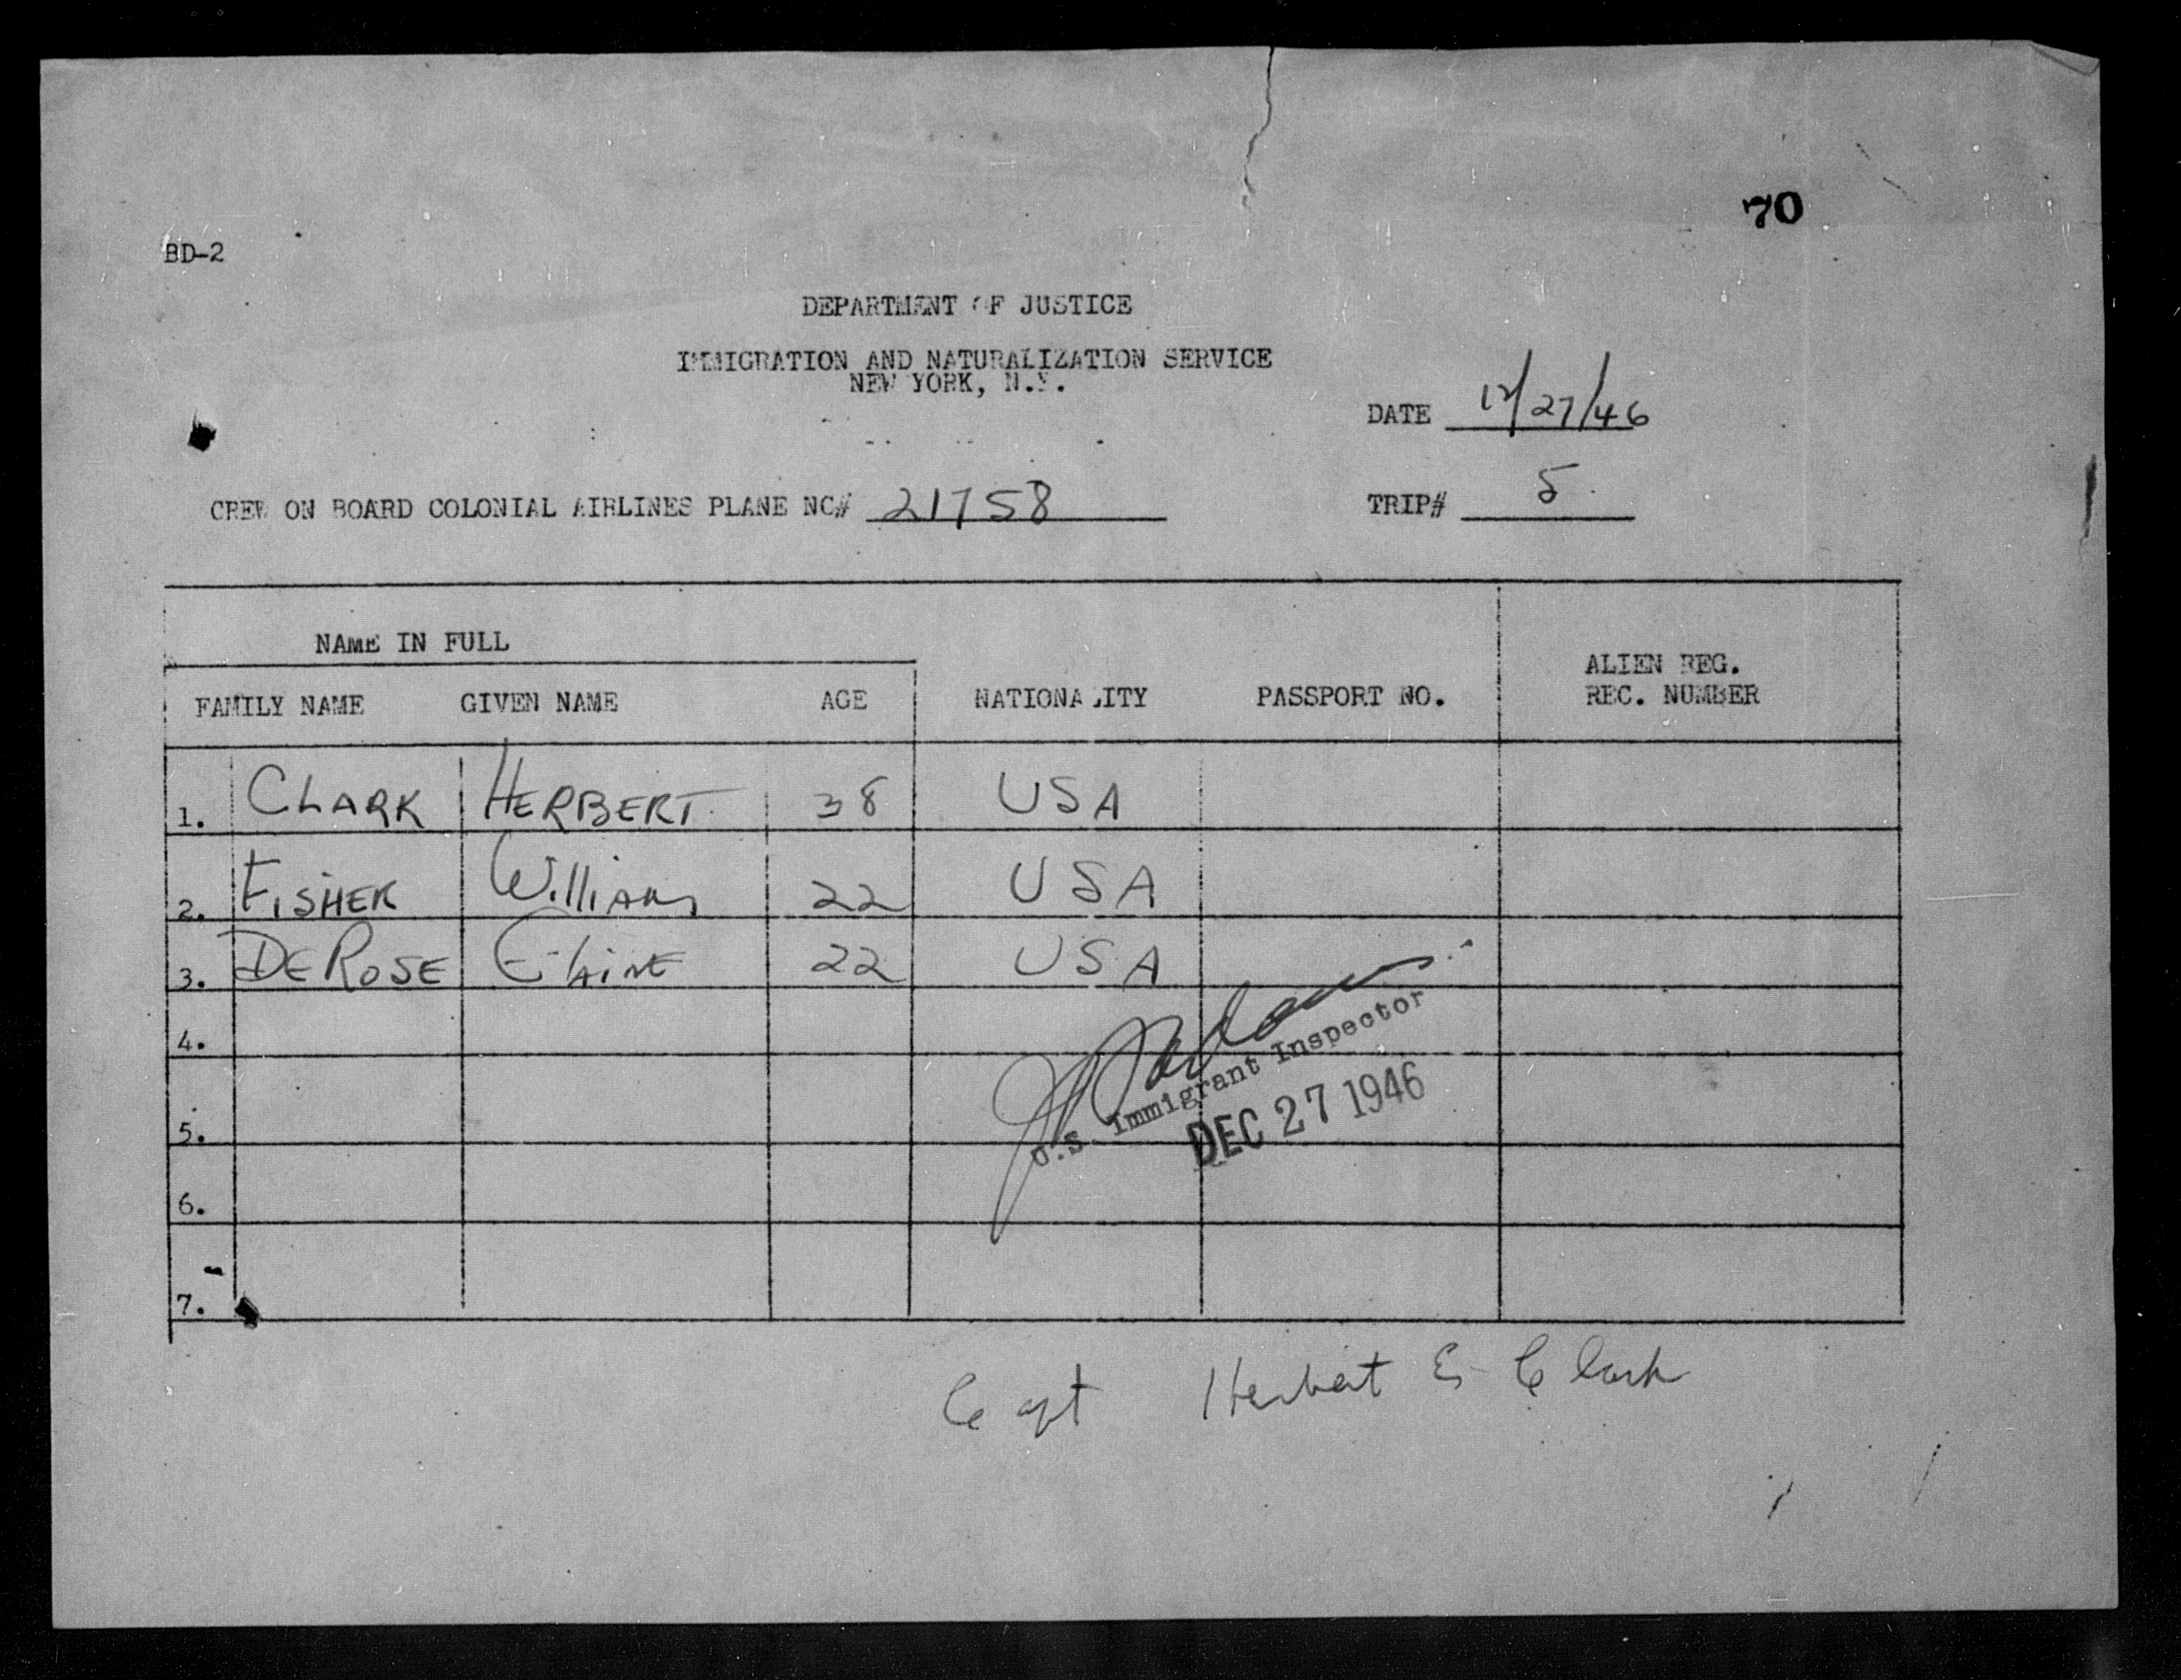 70
BD-2
DEPARTMENT OF JUSTICE
IMMIGRATION AND NATURALIZATION SERVICE
NEW YORK, N.Y.
DATE 12/27/46
CREW ON BOARD COLONIAL AIRLINES PLANE NC# 21758 TRIP# 5
NAME IN FULL
FAMILY NAME GIVEN NAME AGE NATIONALITY PASSPORT NO. ALIEN REG. REC. NUMBER
1. CLARK HERBERT 38 USA
2. FISHER William 22 USA
3. DEROSE ElAINE 22 USA
4.
U.S. Immigrant Inspector
DEC 27 1946
5.
6.
7.
Capt Herbert E Clark